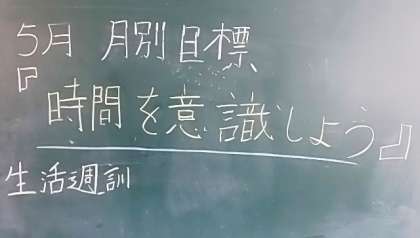 5月 月別目標
『時間を意識しよう』
生活週訓